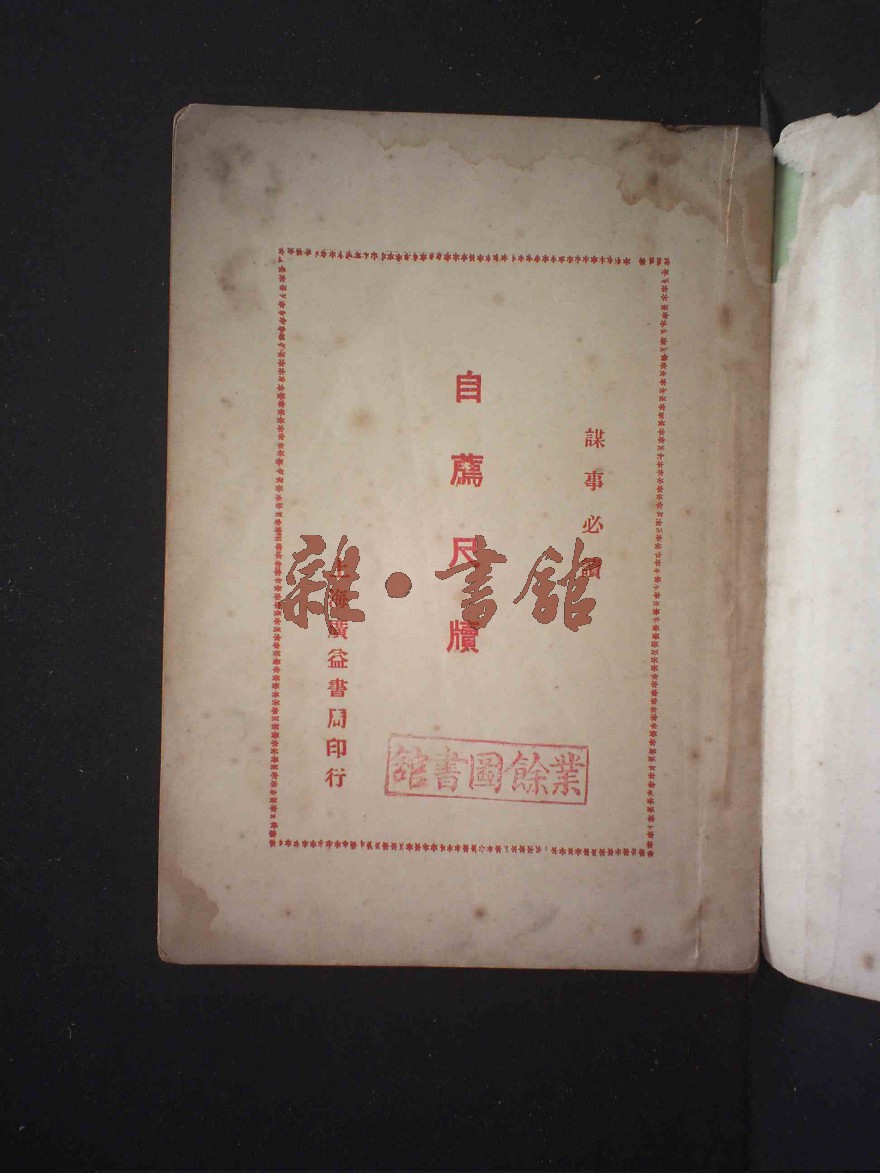 謀事必讀
自薦尺牘
上海廣益書局印行
業餘圖書館
雜·書館